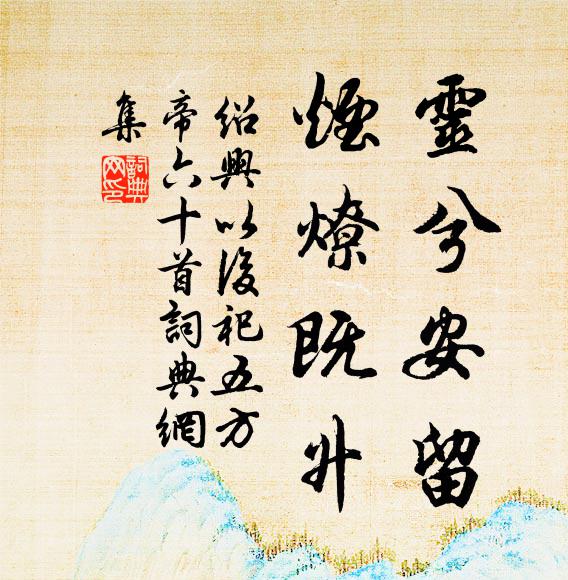 靈兮安留
煙燎既升
紹興以後祀五方
帝六十首詞典網
集
詞典
网印